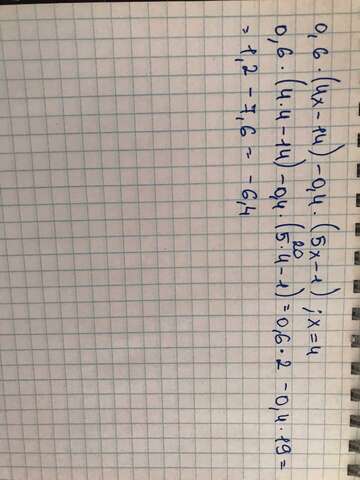 0,6·(4x-14)-0,4·(5x-1); x=4
0,6·(4·4-14)-0,4·(5·4-1)=0,6·2-0,4·19=
20
=1,2-7,6=-6,4